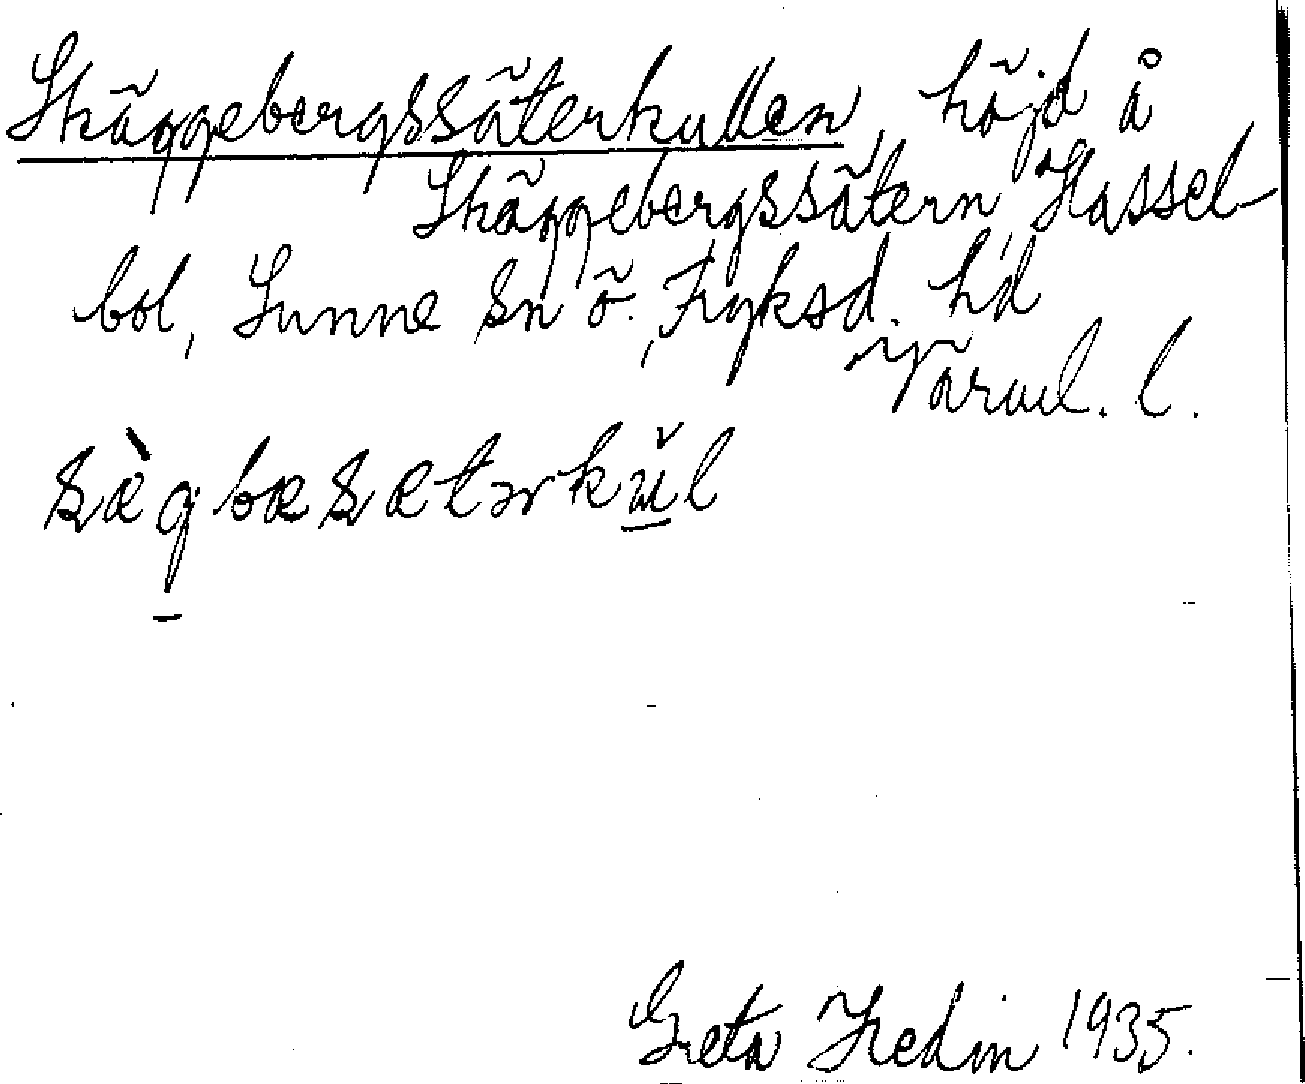 Skäggebergssäterkullen, höjd å
Skäggebergssätern, Hassel-
bol, Sunne sn ö., Fryksd. hd
Värml. l.
Greta Hedin 1935.